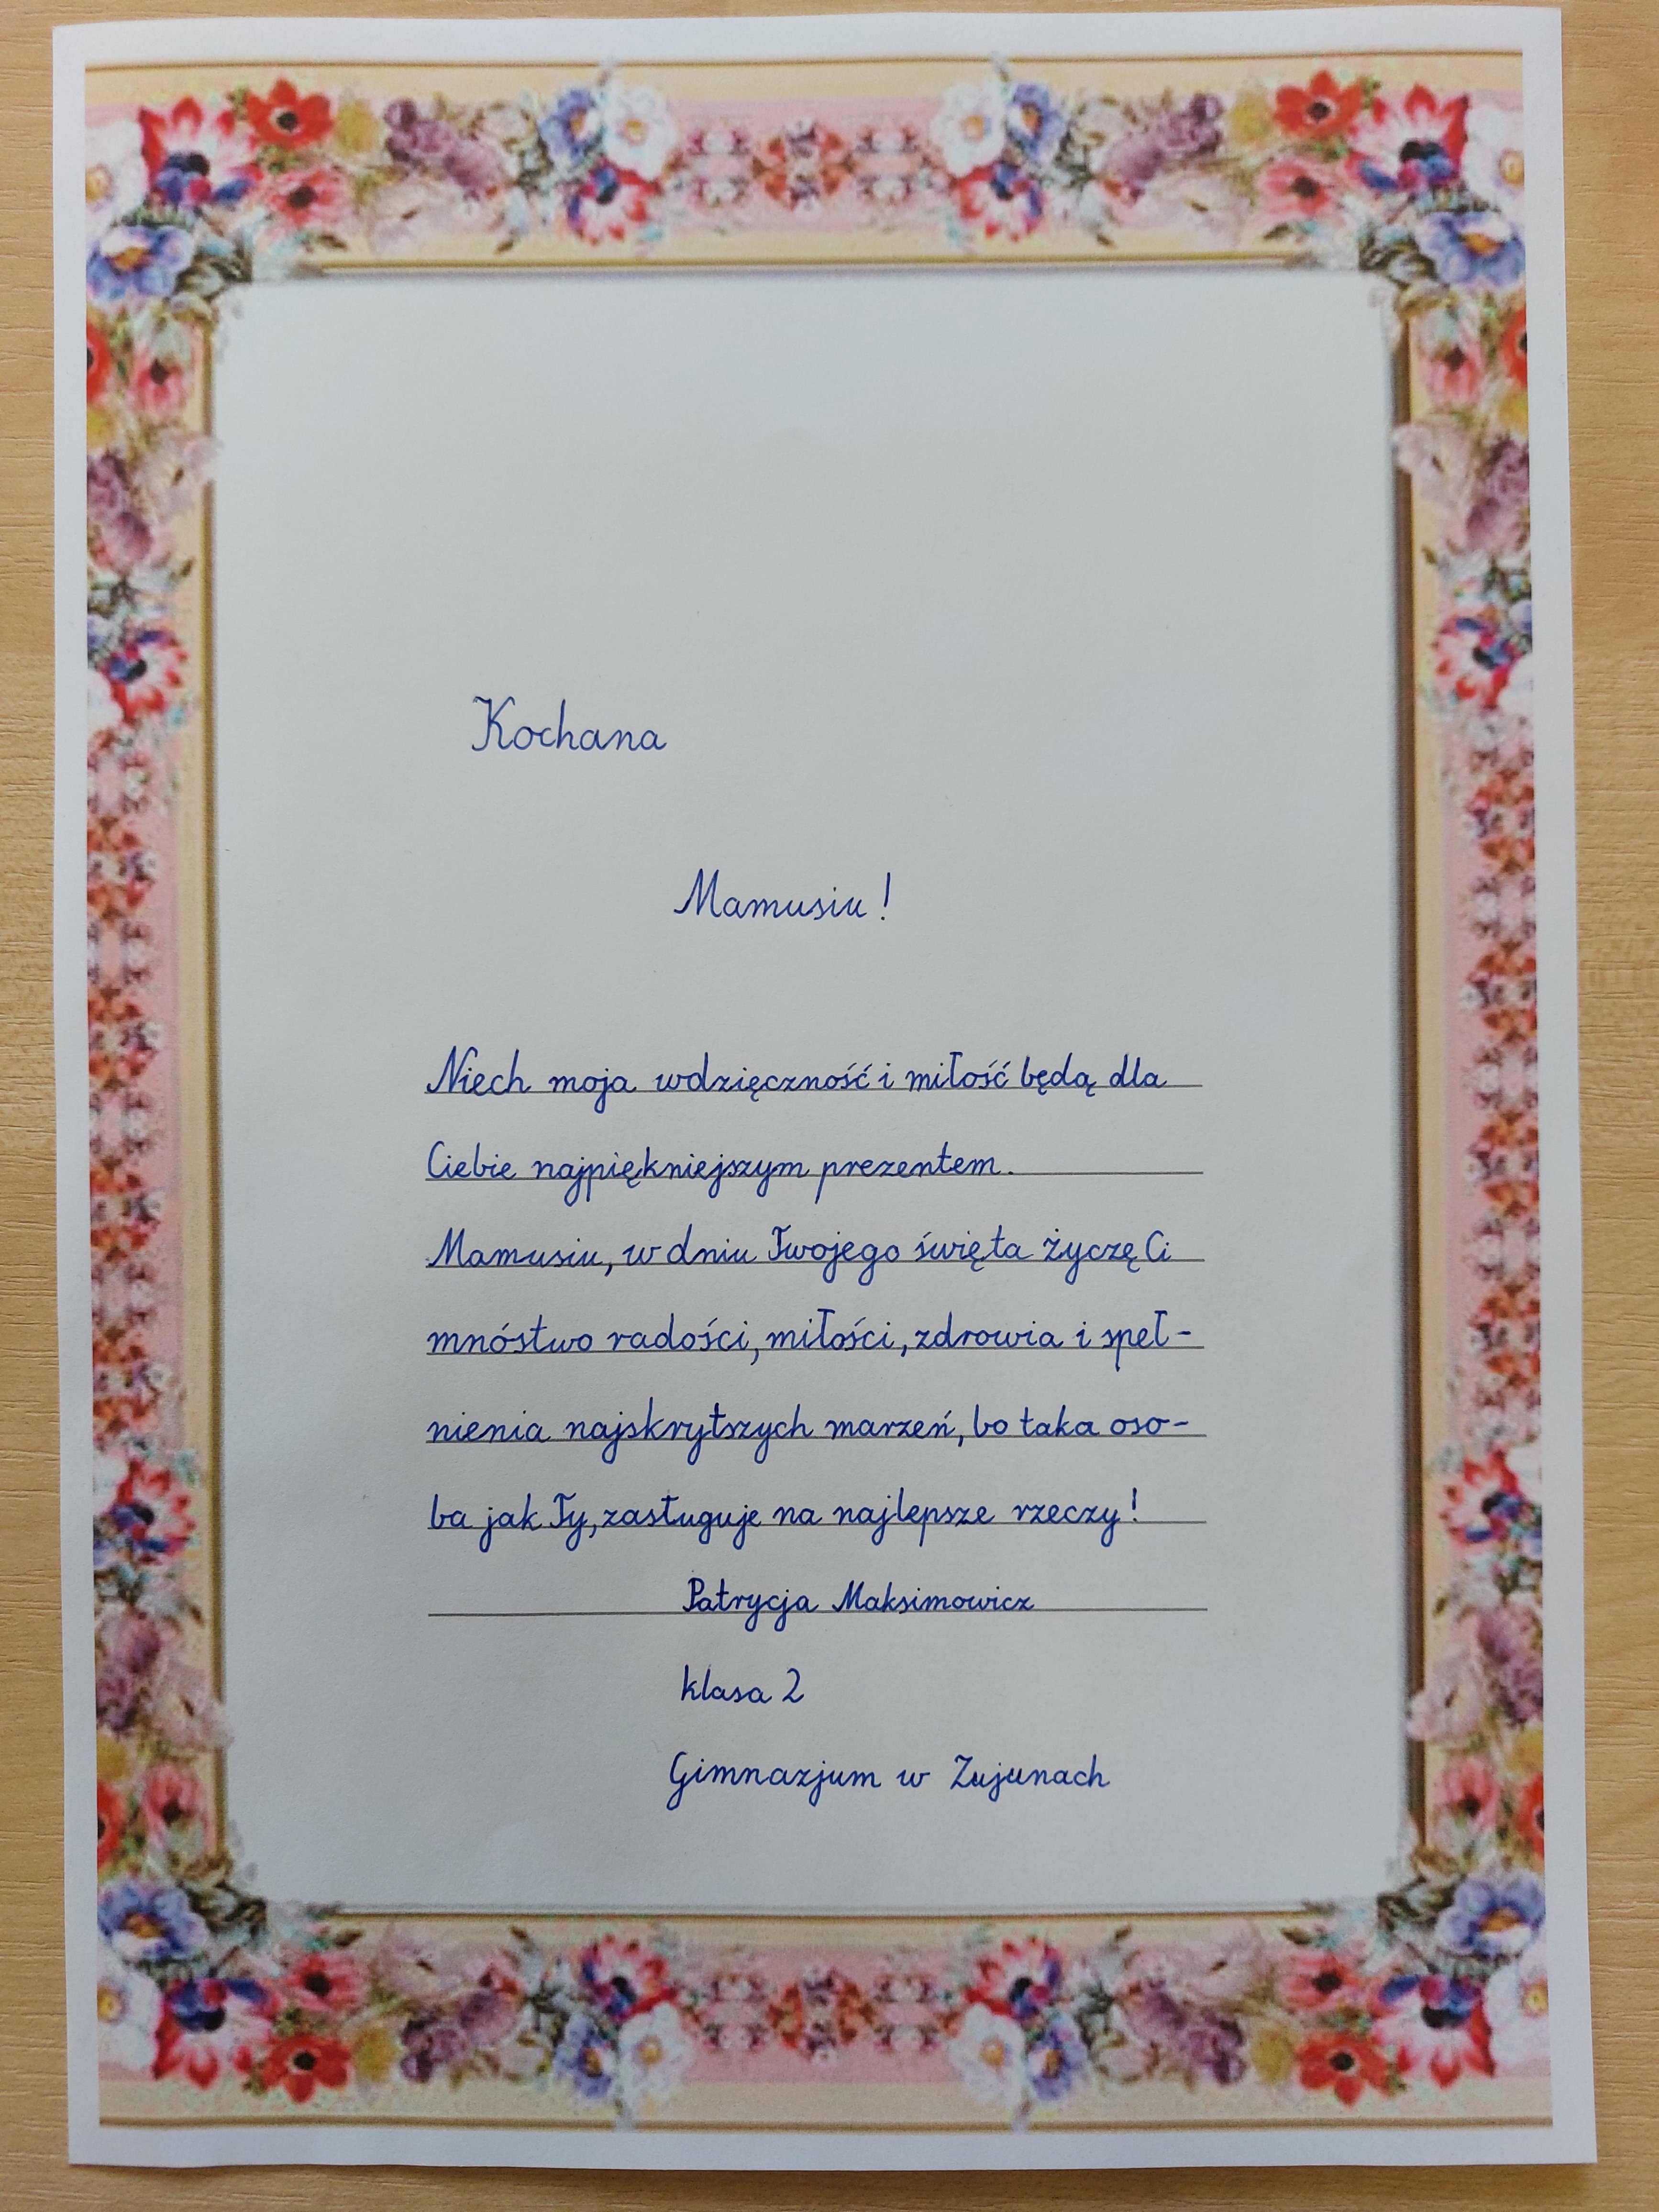 Kochana
Mamusiu!
Niech moja wdzięczność i miłość będą dla
Ciebie najpiękniejszym prezentem.
Mamusiu, w dniu Twojego święta życzę Ci
mnóstwo radości, miłości, zdrowia i speł-
nienia najskrytszych marzeń, bo taka oso-
ba jak Ty, zasługuje na najlepsze rzeczy!
Patrycja Maksimowicz
klasa 2
Gimnazjum w Zujunach